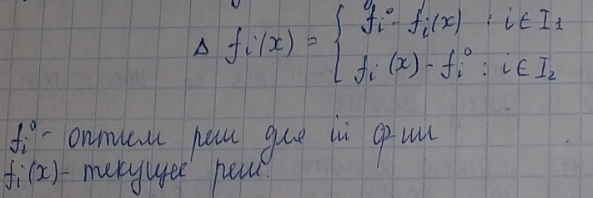 Δ fi(x) = { fi⁰ - fi(x) : i ∈ I₁
fi(x) - fi⁰ : i ∈ I₂
fi⁰ - оптим реш для iй ф-ии
fi(x) - текущее реш.